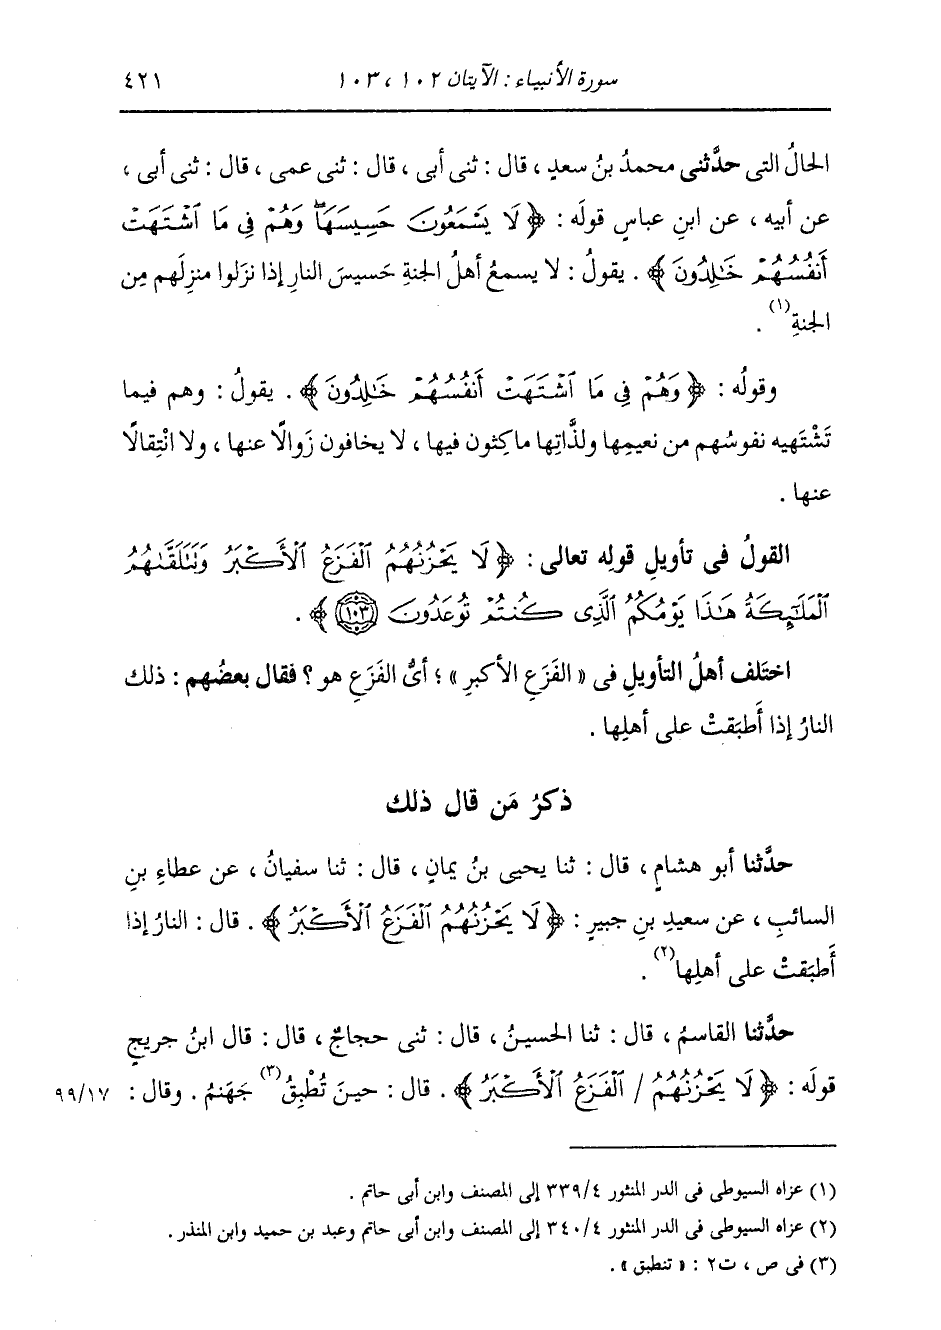 سورة الأنبياء : الآيتان ١٠٢ ، ١٠٣ ٤٢١
الحالُ التى حدَّثنى محمدُ بنُ سعدٍ ، قال : ثنى أبى ، قال : ثنى عمى ، قال : ثنى أبى ،
عن أبيه ، عن ابنِ عباسٍ قولَه : ﴿ لَا يَسْمَعُونَ حَسِيسَهَا ۖ وَهُمْ فِى مَا ٱشْتَهَتْ
أَنفُسُهُمْ خَـٰلِدُونَ ﴾ . يقولُ : لا يسمعُ أهلُ الجنةِ حَسيسَ النارِ إذا نزَلوا منزلَهم مِن
الجنةِ (١) .
وقولُه : ﴿ وَهُمْ فِى مَا ٱشْتَهَتْ أَنفُسُهُمْ خَـٰلِدُونَ ﴾ . يقولُ : وهم فيما
تَشْتَهيه نفوسُهم من نعيمِها ولذَّاتِها ماكِثون فيها ، لا يخافون زَوالًا عنها ، ولا انْتِقالًا
عنها .
القولُ فى تأويلِ قولِه تعالى : ﴿ لَا يَحْزُنُهُمُ ٱلْفَزَعُ ٱلْأَكْبَرُ وَتَتَلَقَّىٰهُمُ
ٱلْمَلَـٰٓئِكَةُ هَـٰذَا يَوْمُكُمُ ٱلَّذِى كُنتُمْ تُوعَدُونَ ﴿١٠٣﴾ ﴾ .
اختَلف أهلُ التأويلِ فى « الفَزَعِ الأكبرِ » ؛ أىُّ الفَزَعِ هو ؟ فقال بعضُهم : ذلك
النارُ إذا أَطبَقتْ على أهلِها .
ذكرُ مَن قال ذلك
حدَّثنا أبو هشامٍ ، قال : ثنا يحيى بنُ يمانٍ ، قال : ثنا سفيانُ ، عن عطاءِ بنِ
السائبِ ، عن سعيدِ بنِ جبيرٍ : ﴿ لَا يَحْزُنُهُمُ ٱلْفَزَعُ ٱلْأَكْبَرُ ﴾ . قال : النارُ إذا
أَطبَقتْ على أهلِها (٢) .
حدَّثنا القاسمُ ، قال : ثنا الحسينُ ، قال : ثنى حجاجٌ ، قال : قال ابنُ جريجٍ
قولَه : ﴿ لَا يَحْزُنُهُمُ / ٱلْفَزَعُ ٱلْأَكْبَرُ ﴾ . قال : حينَ تُطْبِقُ (٣) جَهَنمُ . وقال : ٩٩/١٧
(١) عزاه السيوطى فى الدر المنثور ٣٣٩/٤ إلى المصنف وابن أبى حاتم .
(٢) عزاه السيوطى فى الدر المنثور ٣٤٠/٤ إلى المصنف وابن أبى حاتم وعبد بن حميد وابن المنذر .
(٣) فى ص ، ت٢ : « تنطبق » .